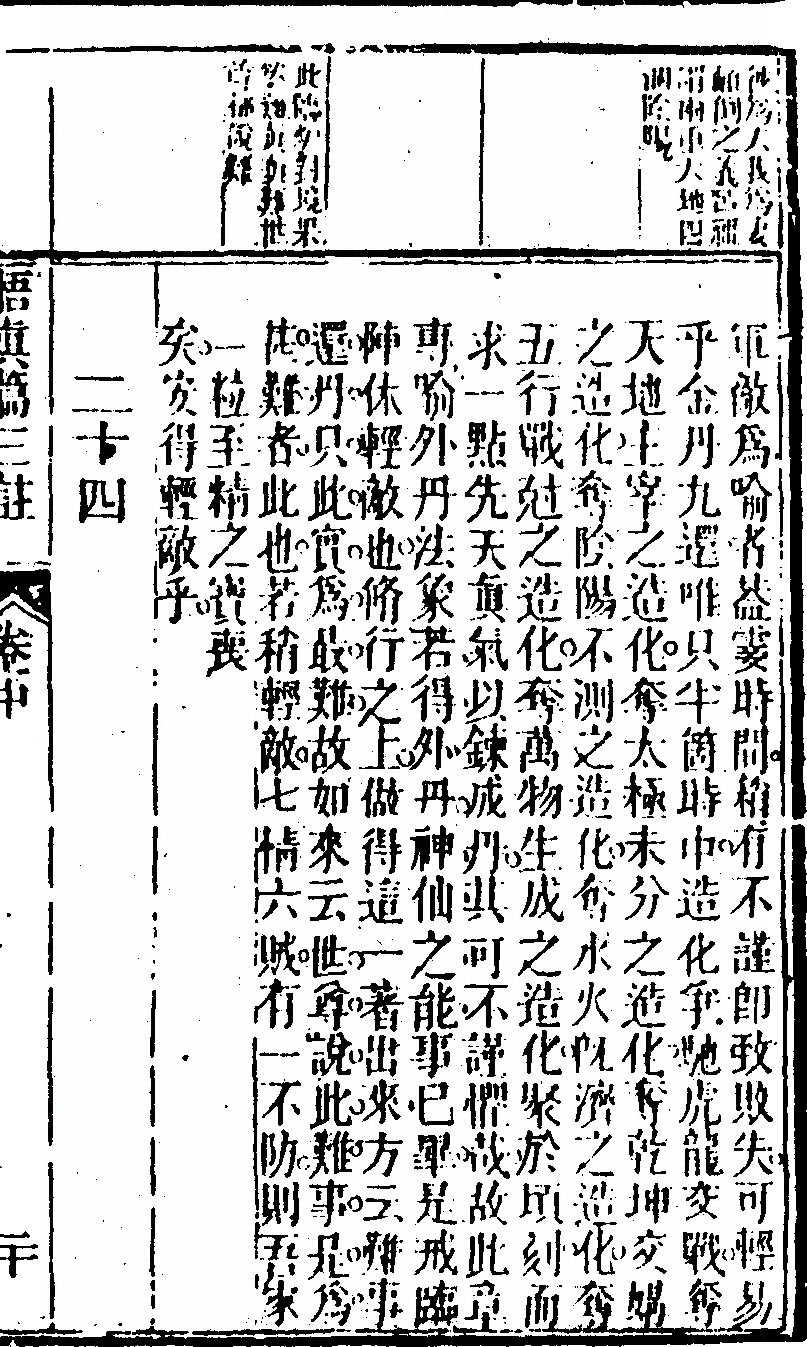 軍敵爲喻者葢霎時間稍有不謹卽致敗失可輕易
乎金丹九還唯只半箇時中造化爭馳虎龍交戰奪
天地主宰之造化奪太極未分之造化奪乾坤交媾
之造化奪陰陽不測之造化奪水火旣濟之造化奪
五行戰尅之造化奪萬物生成之造化聚於頃刻而
求一點先天眞氣以鍊成丹其可不謹懼哉故此章
專喻外丹法象若得外丹神仙之能事巳畢是戒臨
陣休輕敵也脩行之上做得這一著出來方云難事
還丹只此實爲最難故如來云世尊說此難事是爲
甚難者此也若稍輕敵七情六賊有一不防則吾家
一粒至精之寳喪
矣安得輕敵乎
二十四
此臨爐對境采
世
難
悟眞篇三註
卷中
二十